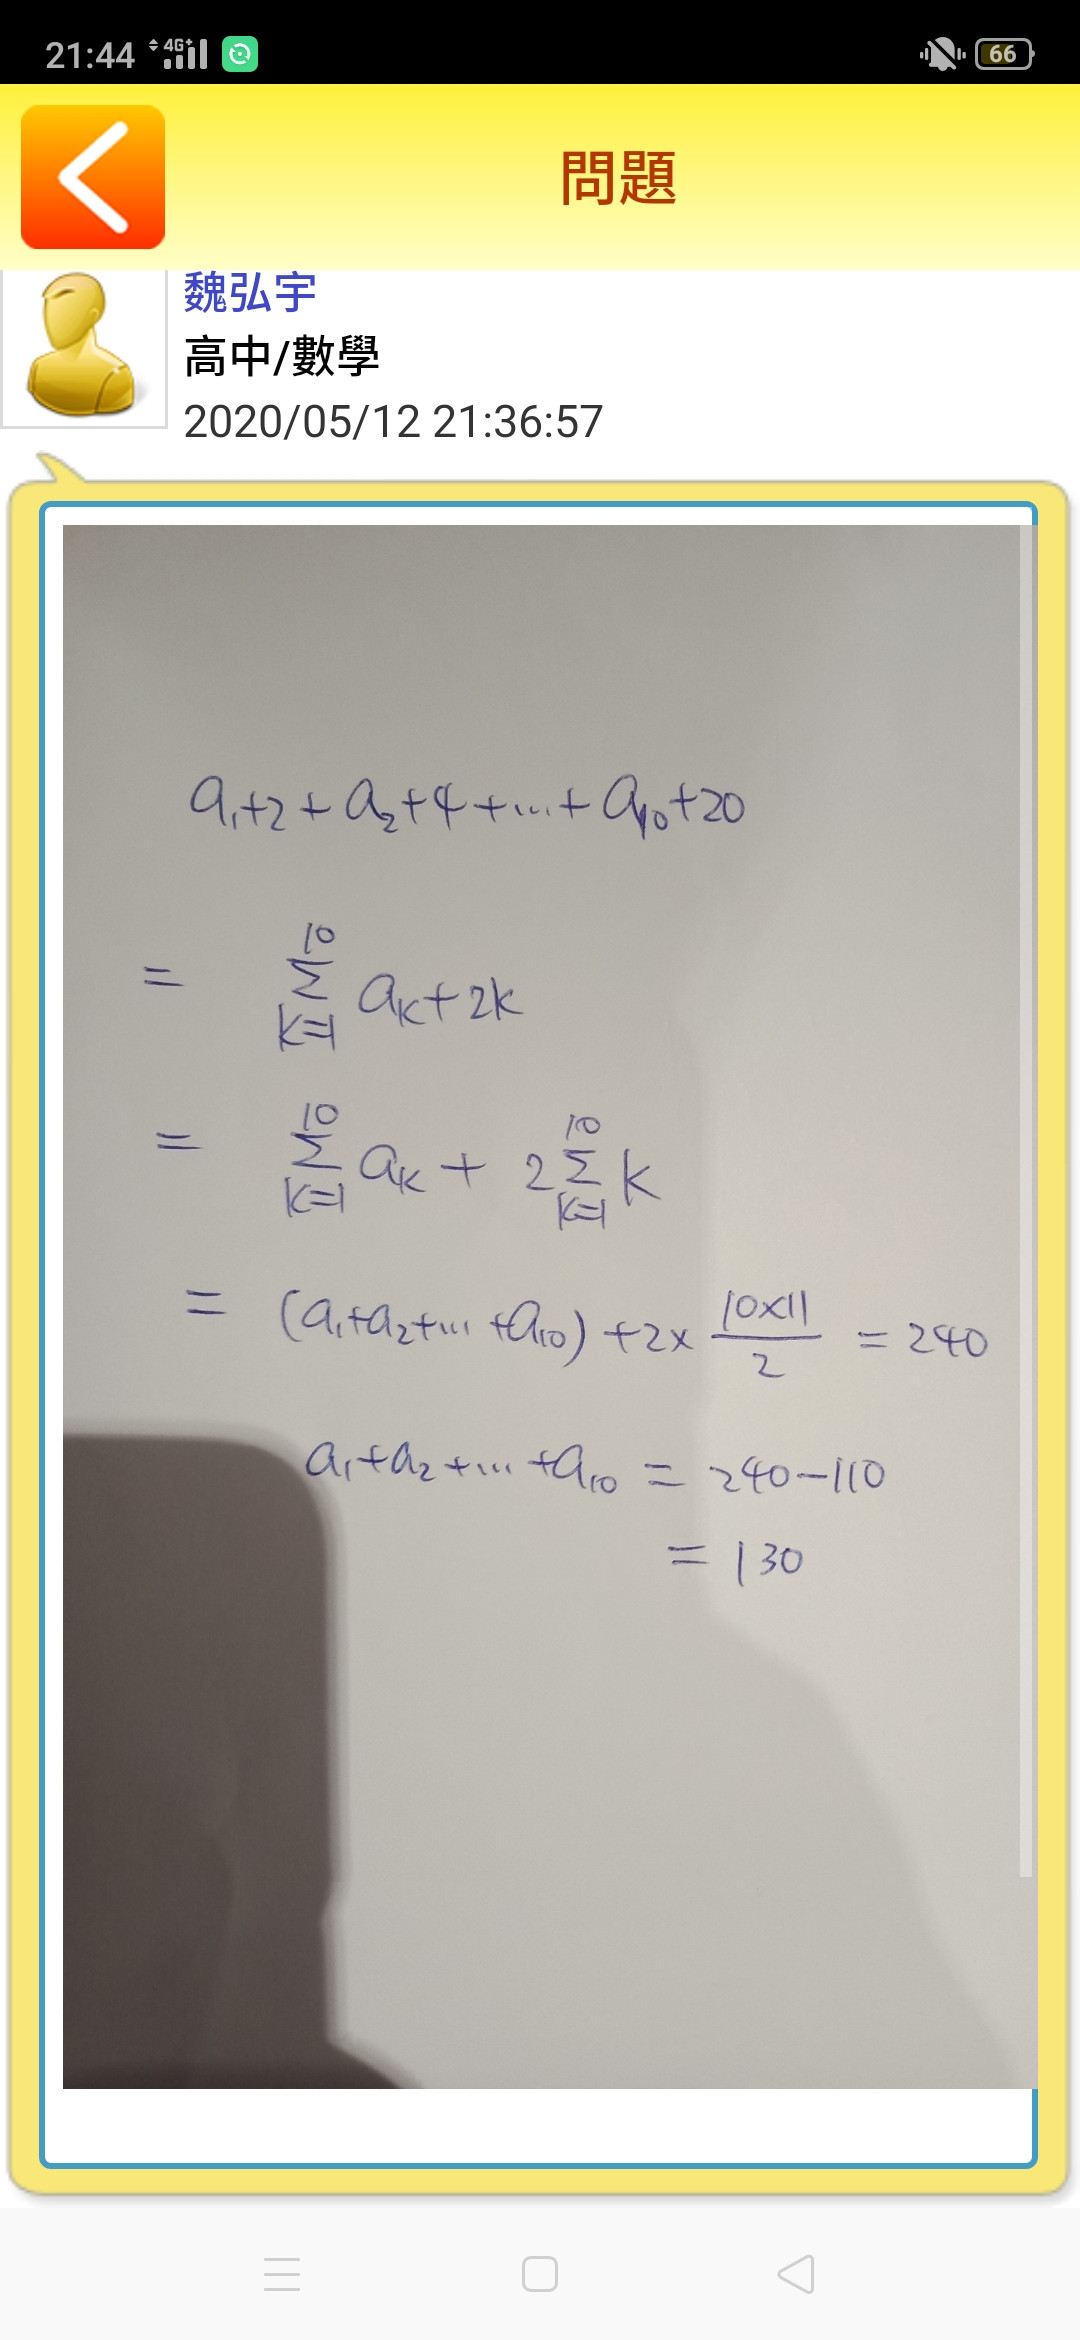 21:44 4G+ 66
問題
魏弘宇
高中/數學
2020/05/12 21:36:57
a₁+2+a₂+4+...+a₁₀+20
= 10 Σ k=1 aₖ+2k
= 10 Σ k=1 aₖ + 2 10 Σ k=1 k
= (a₁+a₂+...+a₁₀)+2× 10×11 / 2 = 240
a₁+a₂+...+a₁₀ = 240-110
= 130